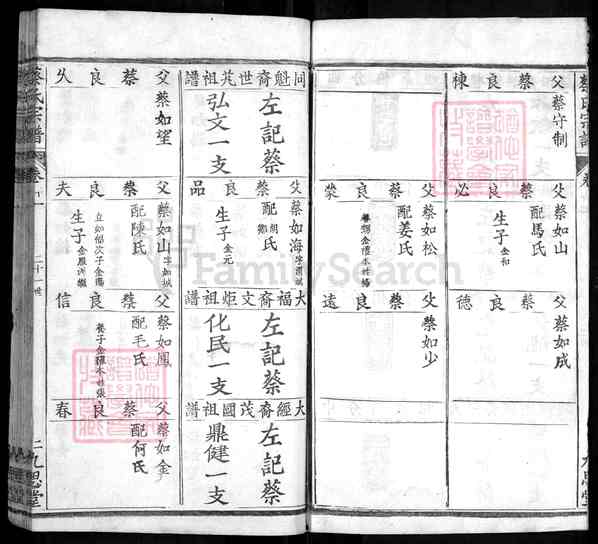 蔡氏宗譜
父蔡良棟
父蔡守制
父蔡良必
父蔡如山
配馬氏
生子金和
父蔡良德
父蔡如成
父蔡良裳
父蔡如松
配姜氏
父蔡良遠
父蔡如少
同魁裔世芃祖譜
左記蔡
弘文一支
父蔡良品
父蔡如海
配胡氏
生子金元
大福裔文炬祖譜
左記蔡
化民一支
大經裔茂國祖譜
左記蔡
鼎健一支
父蔡良久
父蔡如望
父蔡良夫
父蔡如山字如城
配陳氏
立如福次子金陽
生子
父蔡良信
父蔡如鳳
配毛氏
父蔡良春
父蔡如金
配何氏
蔡氏宗譜
卷
二十一世
二
九思堂
九思堂
FamilySearch